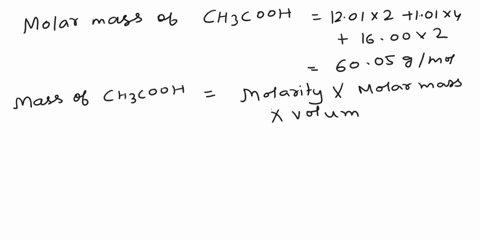 Molar mass of CH3COOH = 12.01 x 2 + 1.01 x 4
+ 16.00 x 2
= 60.05 g/mol
Mass of CH3COOH = Molarity x Molar mass
x volum